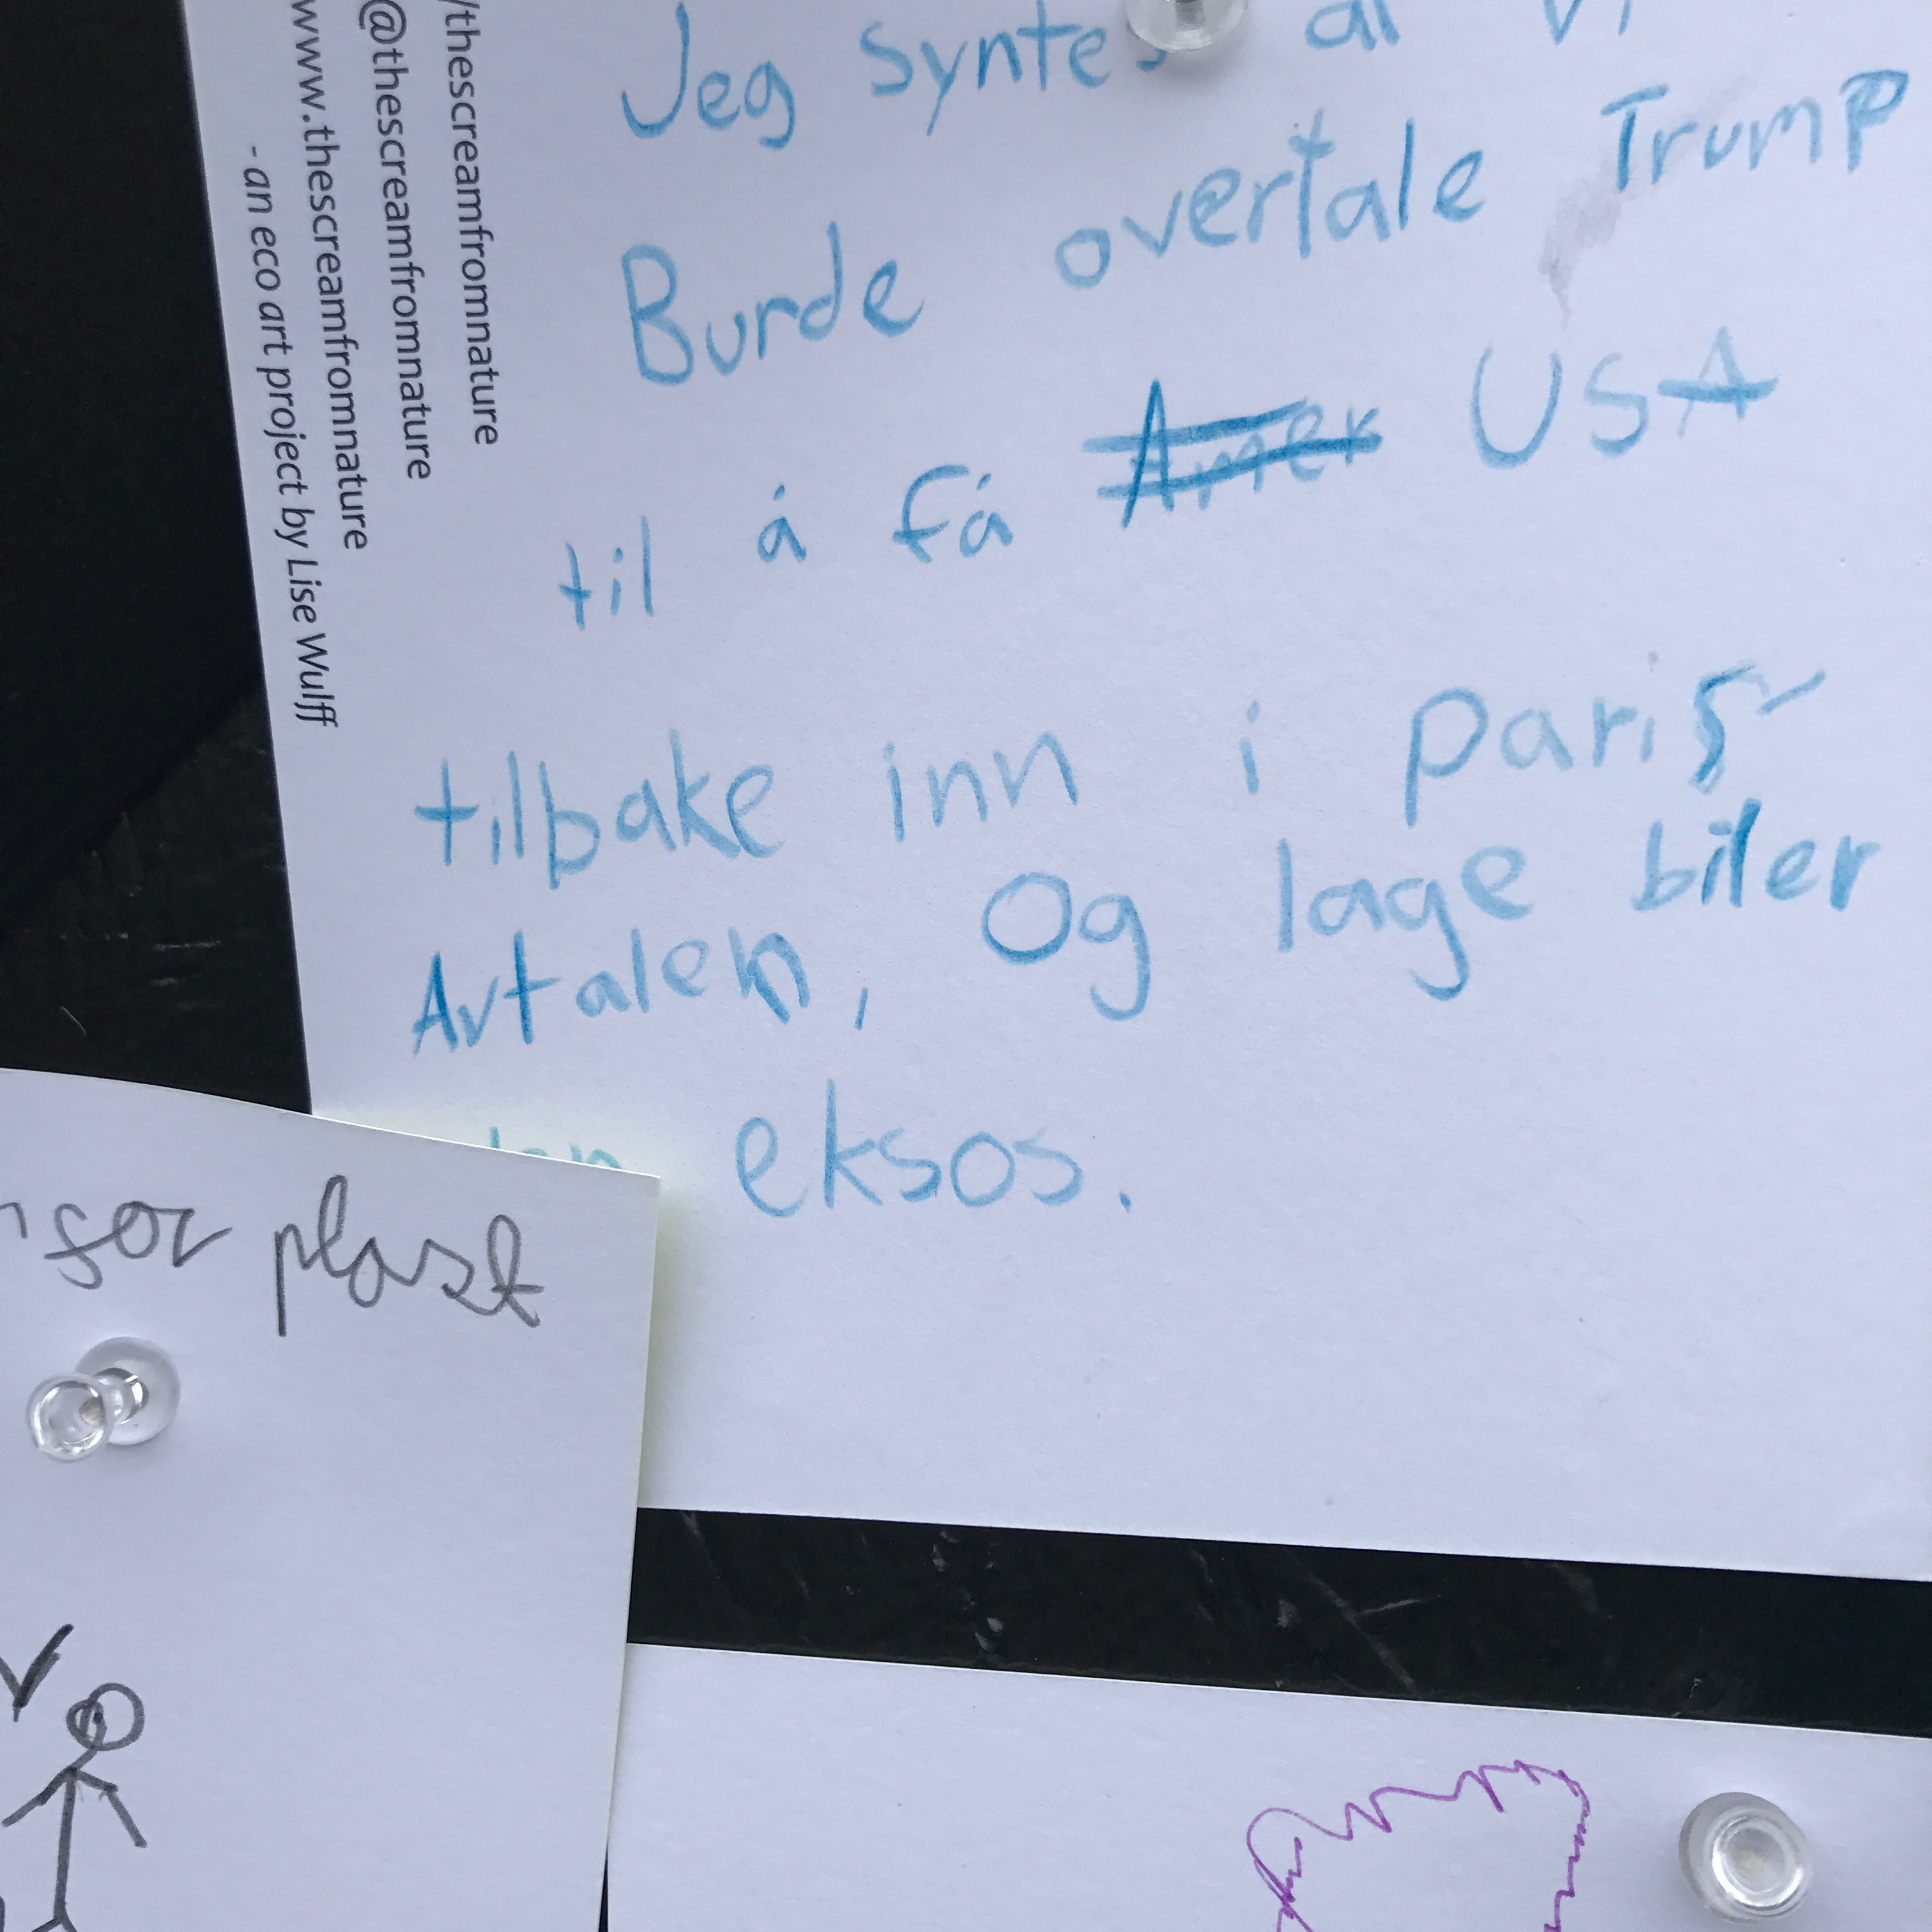 /thescreamfromnature
@thescreamfromnature
www.thescreamfromnature
- an eco art project by Lise Wulff
Jeg Syntes at vi
Burde overtale Trump
til å få Amer USA
tilbake inn i paris-
Avtalen, Og lage biler
eksos.
for plast